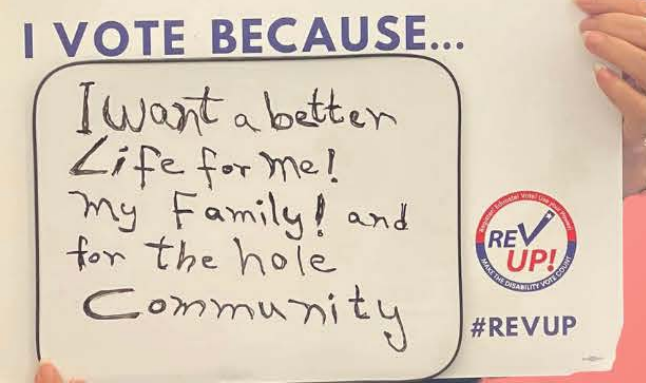 I VOTE BECAUSE...
I want a better
Life for me!
my Family! and
for the hole
Community
Register! Educate! Vote! Use your Power!
REV
UP!
MAKE THE DISABILITY VOTE COUNT
#REVUP